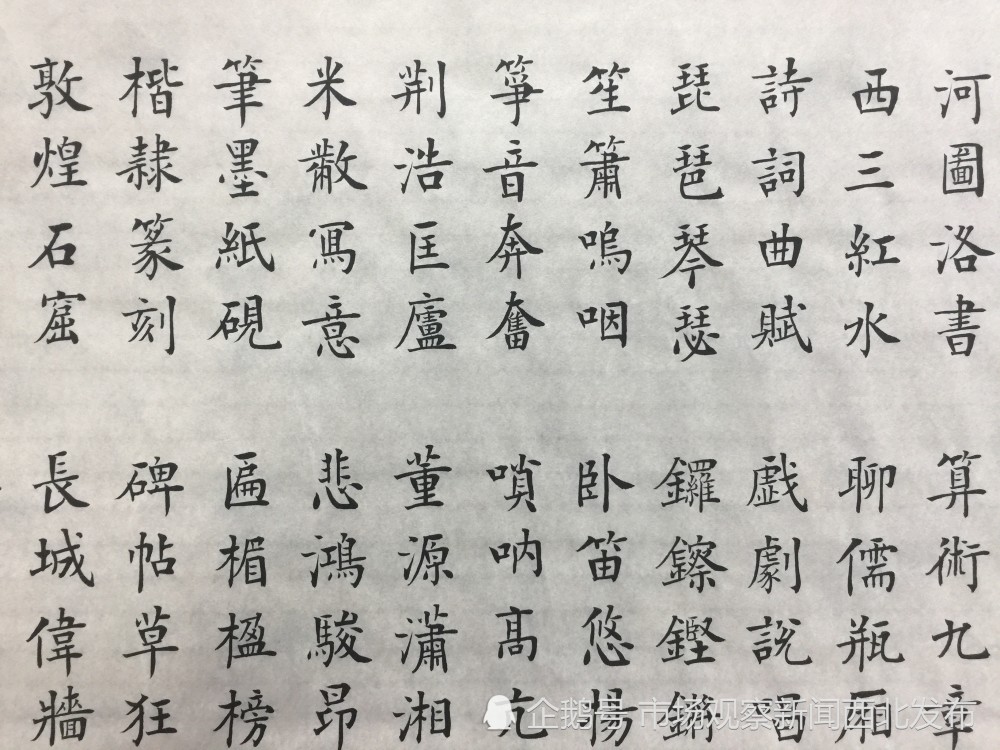 河圖洛書 算術九章
西三紅水 聊儒瓶厢
詩詞曲賦 戯劇説唱
琵琶琴瑟 鑼鑔鏗鏘
笙簫嗚咽 卧笛悠揚
箏音奔奮 嗩呐高亢
荆浩匡廬 董源瀟湘
米黻寫意 悲鴻駿昂
筆墨紙硯 匾楣楹榜
楷隸篆刻 碑帖草狂
敦煌石窟 長城偉牆
企鹅号 市场观察新闻西北发布